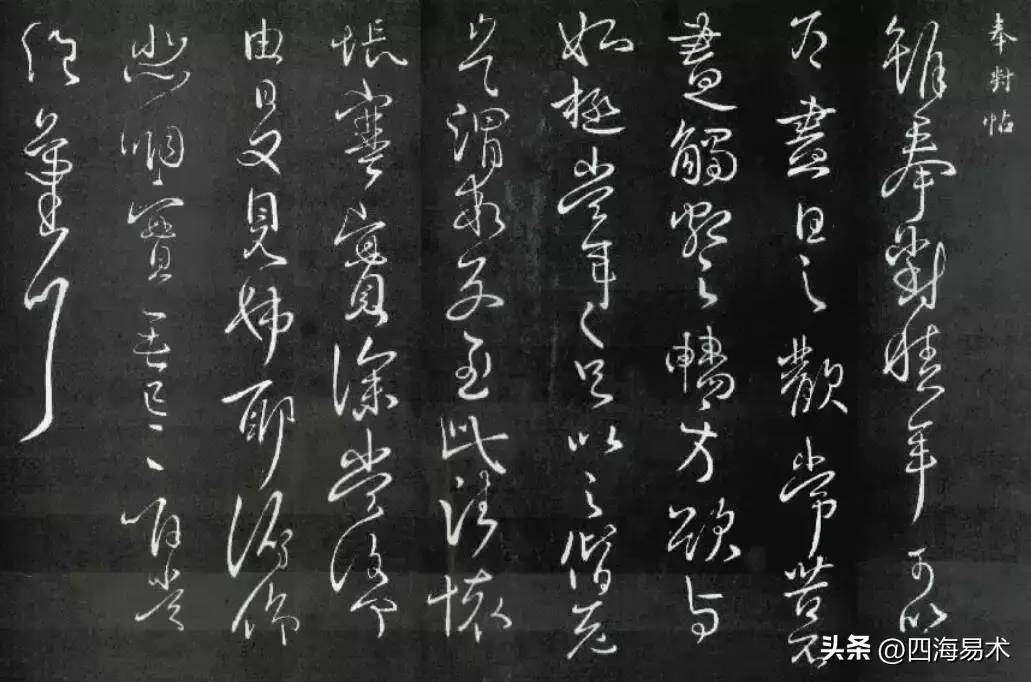 奉對帖
雖奉對積年可以
為盡日之歡常苦不
盡觸額之暢方欲與
姊極當年之疋以之偕老
豈謂乖別至此諸懷
悵塞實深當復何
由日夕見姊耶俯仰
悲咽實無已已惟當
絕氣耳
头条 @四海易术